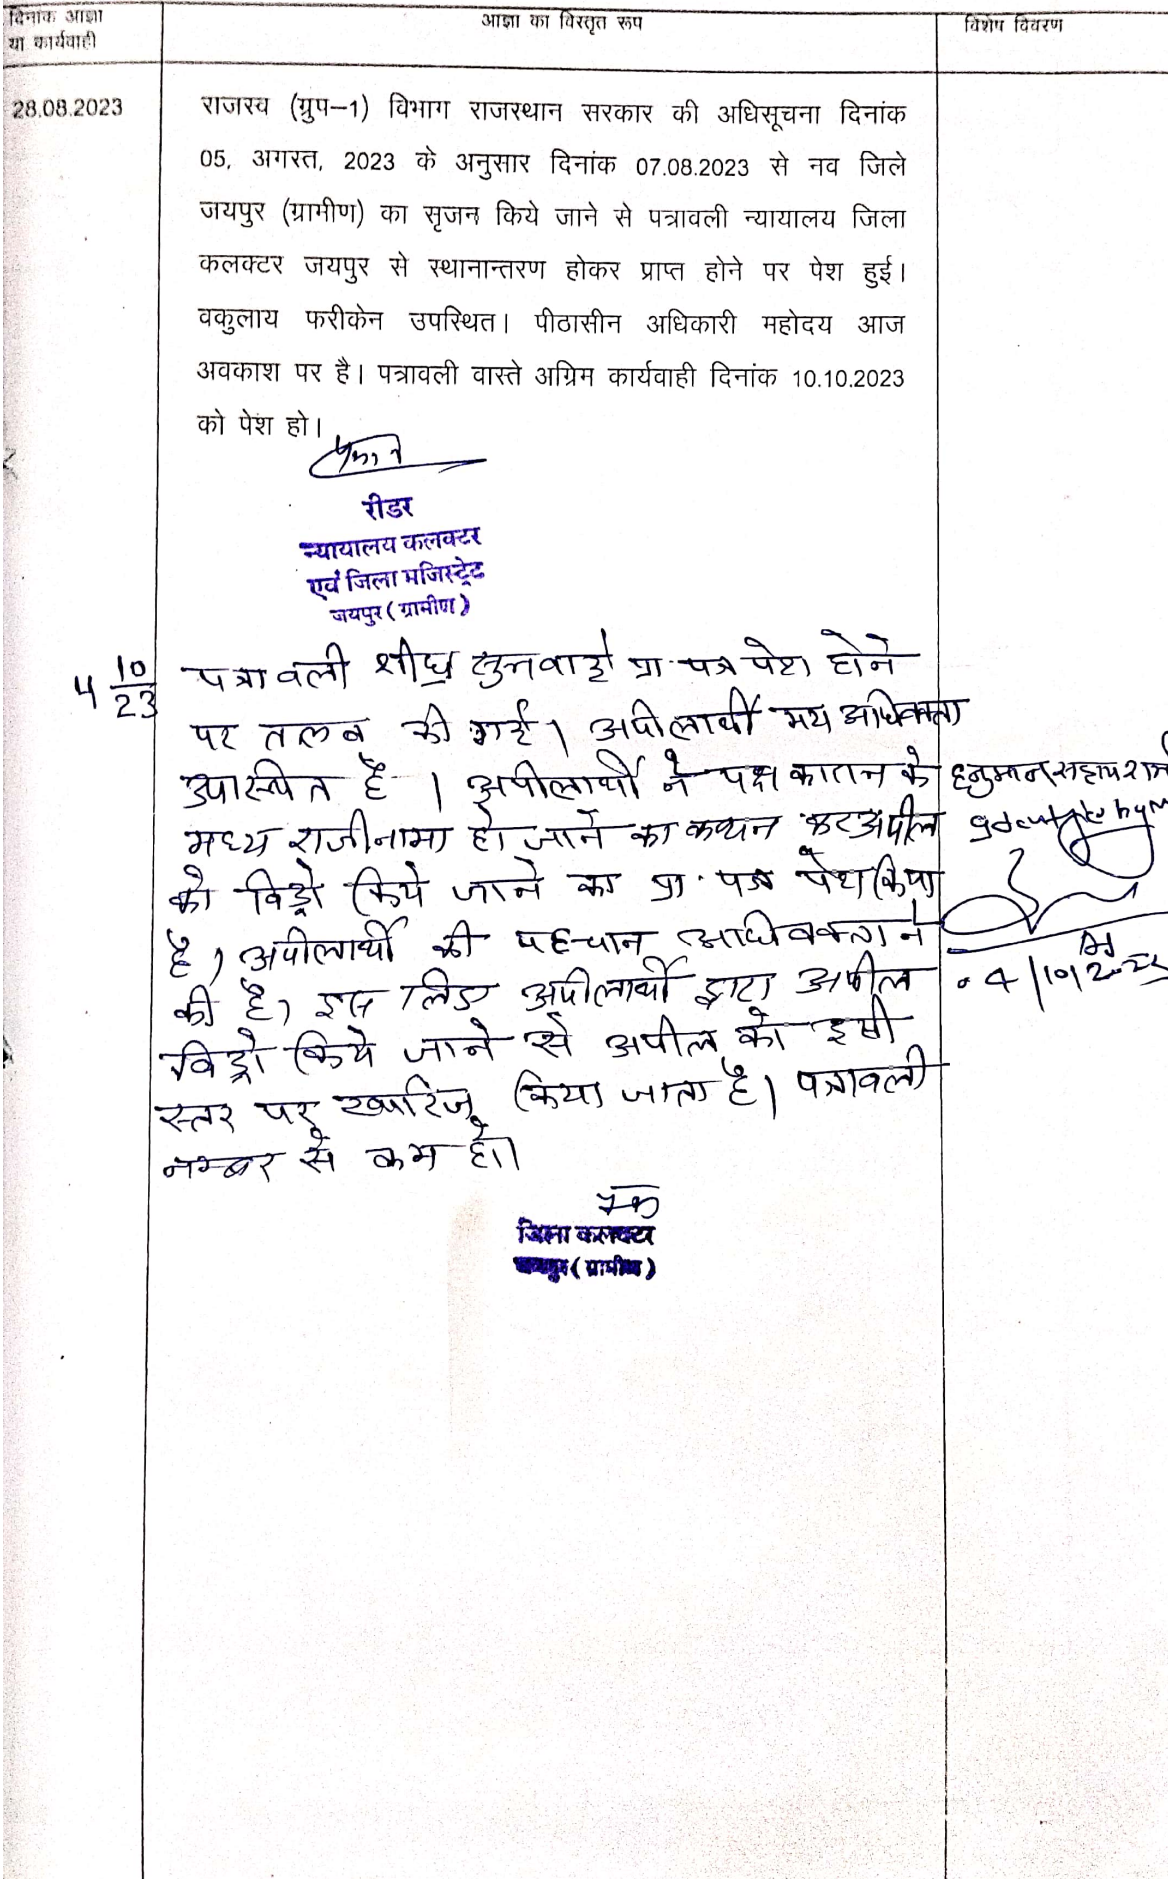 दिनांक आज्ञा
या कार्यवाही
आज्ञा का विस्तृत रूप
विशेष विवरण
28.08.2023
राजस्व (ग्रुप–1) विभाग राजस्थान सरकार की अधिसूचना दिनांक
05, अगस्त, 2023 के अनुसार दिनांक 07.08.2023 से नव जिले
जयपुर (ग्रामीण) का सृजन किये जाने से पत्रावली न्यायालय जिला
कलक्टर जयपुर से स्थानान्तरण होकर प्राप्त होने पर पेश हुई।
वकुलाय फरीकेन उपस्थित। पीठासीन अधिकारी महोदय आज
अवकाश पर है। पत्रावली वास्ते अग्रिम कार्यवाही दिनांक 10.10.2023
को पेश हो।
रीडर
न्यायालय कलक्टर
एवं जिला मजिस्ट्रेट
जयपुर (ग्रामीण)
4 10/23
पत्रावली शीघ्र सुनवाई प्रा. पत्र पेश होने
पर तलब की गई। अपीलार्थी मय अधिवक्ता
उपस्थित है। अपीलार्थी ने पक्षकारान के
मध्य राजीनामा हो जाने का कथन कर अपील
को विड्रो किये जाने का प्रा. पत्र पेश किया
है। अपीलार्थी की पहचान अधिवक्ता ने
की है। इस लिए अपीलार्थी द्वारा अपील
विड्रो किये जाने से अपील को इसी
स्तर पर खारिज किया जाता है। पत्रावली
नम्बर से कम हो।
हनुमान सहाय
4/10/2023
जिला कलक्टर
जयपुर (ग्रामीण)